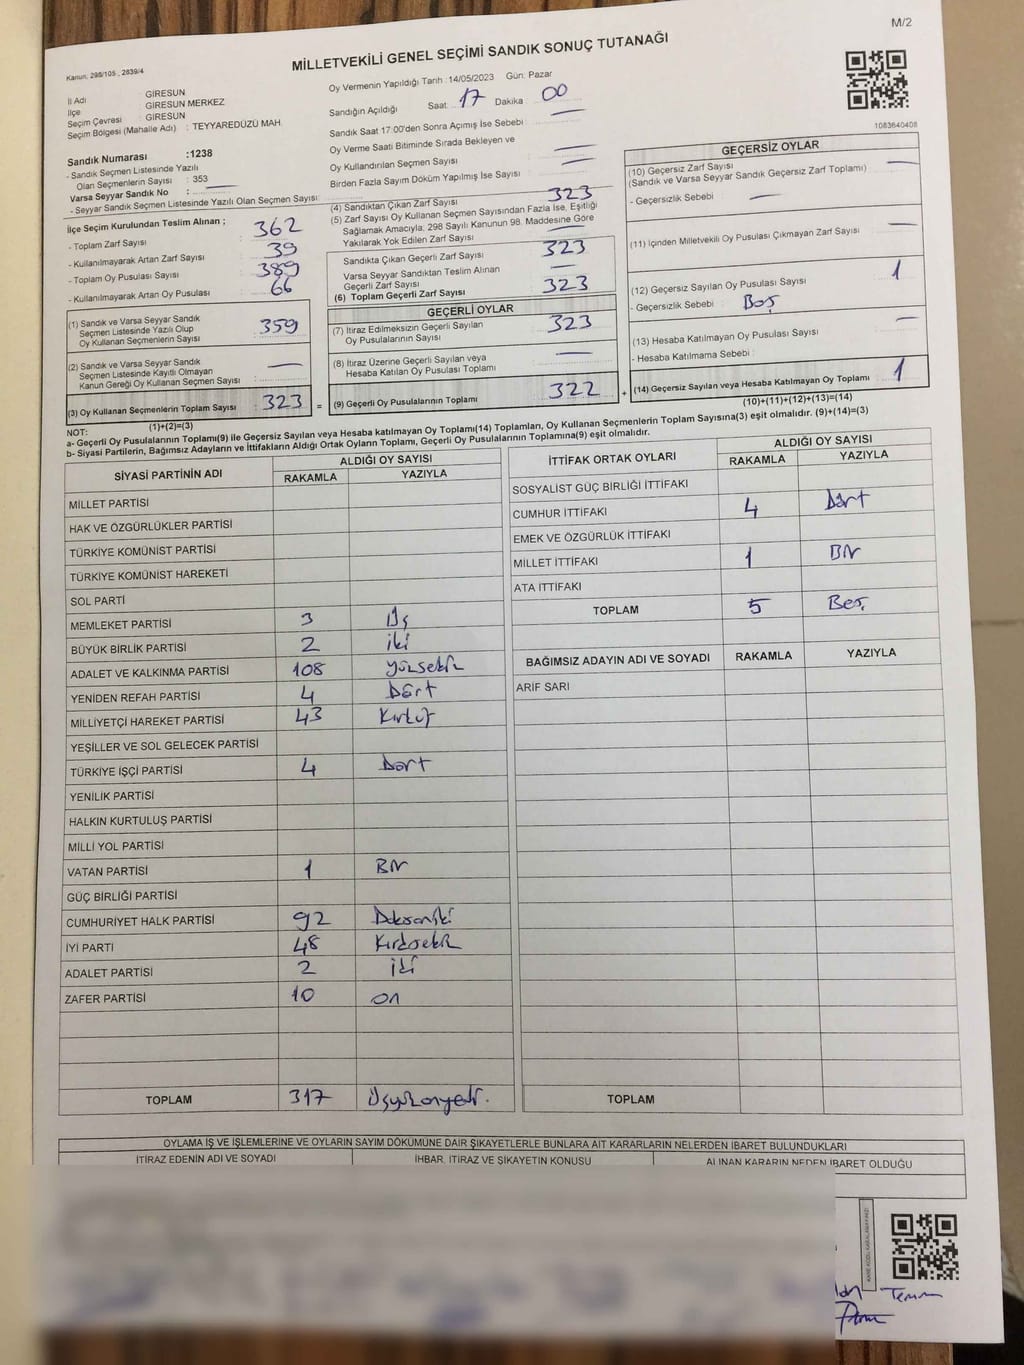 M/2
Kanun, 298/105 , 2839/4
MİLLETVEKİLİ GENEL SEÇİMİ SANDIK SONUÇ TUTANAĞI
İl Adı : GİRESUN
İlçe : GİRESUN MERKEZ
Seçim Çevresi : GİRESUN
Seçim Bölgesi (Mahalle Adı) : TEYYAREDÜZÜ MAH.
Sandık Numarası :1238
- Sandık Seçmen Listesinde Yazılı
Olan Seçmenlerin Sayısı : 353
Varsa Seyyar Sandık No :
- Seyyar Sandık Seçmen Listesinde Yazılı Olan Seçmen Sayısı
Oy Vermenin Yapıldığı Tarih :14/05/2023 Gün: Pazar
Sandığın Açıldığı Saat 17 Dakika 00
Sandık Saat 17:00'den Sonra Açımış İse Sebebi :
Oy Verme Saati Bitiminde Sırada Bekleyen ve
Oy Kullandırılan Seçmen Sayısı
Birden Fazla Sayım Döküm Yapılmış İse Sayısı
1083640408
İlçe Seçim Kurulundan Teslim Alınan ;
- Toplam Zarf Sayısı 362
- Kullanılmayarak Artan Zarf Sayısı 39
- Toplam Oy Pusulası Sayısı 389
- Kullanılmayarak Artan Oy Pusulası 66
(1) Sandık ve Varsa Seyyar Sandık
Seçmen Listesinde Yazılı Olup
Oy Kullanan Seçmenlerin Sayısı 359
(2) Sandık ve Varsa Seyyar Sandık
Seçmen Listesinde Kayıtlı Olmayan
Kanun Gereği Oy Kullanan Seçmen Sayısı
(3) Oy Kullanan Seçmenlerin Toplam Sayısı : 323 =
(1)+(2)=(3)
(4) Sandıktan Çıkan Zarf Sayısı 323
(5) Zarf Sayısı Oy Kullanan Seçmen Sayısından Fazla İse, Eşitliği
Sağlamak Amacıyla, 298 Sayılı Kanunun 98. Maddesine Göre
Yakılarak Yok Edilen Zarf Sayısı
Sandıkta Çıkan Geçerli Zarf Sayısı 323
Varsa Seyyar Sandıktan Teslim Alınan
Geçerli Zarf Sayısı
(6) Toplam Geçerli Zarf Sayısı 323
GEÇERLİ OYLAR
(7) İtiraz Edilmeksizin Geçerli Sayılan
Oy Pusulalarının Sayısı 323
(8) İtiraz Üzerine Geçerli Sayılan veya
Hesaba Katılan Oy Pusulası Toplamı
(9) Geçerli Oy Pusulalarının Toplamı 322 +
GEÇERSİZ OYLAR
(10) Geçersiz Zarf Sayısı
(Sandık ve Varsa Seyyar Sandık Geçersiz Zarf Toplamı)
- Geçersizlik Sebebi :
(11) İçinden Milletvekili Oy Pusulası Çıkmayan Zarf Sayısı
(12) Geçersiz Sayılan Oy Pusulası Sayısı 1
- Geçersizlik Sebebi : Boş
(13) Hesaba Katılmayan Oy Pusulası Sayısı
- Hesaba Katılmama Sebebi :
(14) Geçersiz Sayılan veya Hesaba Katılmayan Oy Toplamı 1
(10)+(11)+(12)+(13)=(14)
NOT:
a- Geçerli Oy Pusulalarının Toplamı(9) ile Geçersiz Sayılan veya Hesaba katılmayan Oy Toplamı(14) Toplamları, Oy Kullanan Seçmenlerin Toplam Sayısına(3) eşit olmalıdır. (9)+(14)=(3)
b- Siyasi Partilerin, Bağımsız Adayların ve İttifakların Aldığı Ortak Oyların Toplamı, Geçerli Oy Pusulalarının Toplamına(9) eşit olmalıdır.
SİYASİ PARTİNİN ADI ALDIĞI OY SAYISI
RAKAMLA YAZIYLA
MİLLET PARTİSİ
HAK VE ÖZGÜRLÜKLER PARTİSİ
TÜRKİYE KOMÜNİST PARTİSİ
TÜRKİYE KOMÜNİST HAREKETİ
SOL PARTİ
MEMLEKET PARTİSİ 3 Üç
BÜYÜK BİRLİK PARTİSİ 2 iki
ADALET VE KALKINMA PARTİSİ 108 yüzsekiz
YENİDEN REFAH PARTİSİ 4 Dört
MİLLİYETÇİ HAREKET PARTİSİ 43 Kırküç
YEŞİLLER VE SOL GELECEK PARTİSİ
TÜRKİYE İŞÇİ PARTİSİ 4 Dört
YENİLİK PARTİSİ
HALKIN KURTULUŞ PARTİSİ
MİLLİ YOL PARTİSİ
VATAN PARTİSİ 1 Bir
GÜÇ BİRLİĞİ PARTİSİ
CUMHURİYET HALK PARTİSİ 92 Doksaniki
İYİ PARTİ 48 Kırksekiz
ADALET PARTİSİ 2 iki
ZAFER PARTİSİ 10 on
TOPLAM 317 Üçyüzonyedi.
İTTİFAK ORTAK OYLARI ALDIĞI OY SAYISI
RAKAMLA YAZIYLA
SOSYALİST GÜÇ BİRLİĞİ İTTİFAKI
CUMHUR İTTİFAKI 4 Dört
EMEK VE ÖZGÜRLÜK İTTİFAKI
MİLLET İTTİFAKI 1 Bir
ATA İTTİFAKI
TOPLAM 5 Beş
BAĞIMSIZ ADAYIN ADI VE SOYADI RAKAMLA YAZIYLA
ARİF SARI
TOPLAM
OYLAMA İŞ VE İŞLEMLERİNE VE OYLARIN SAYIM DÖKÜMÜNE DAİR ŞİKAYETLERLE BUNLARA AİT KARARLARIN NELERDEN İBARET BULUNDUKLARI
İTİRAZ EDENİN ADI VE SOYADI İHBAR, İTİRAZ VE ŞİKAYETİN KONUSU ALINAN KARARIN NEDEN İBARET OLDUĞU